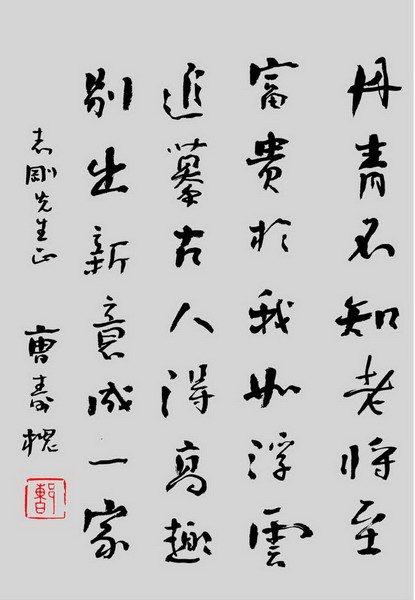 丹青不知老將至
富貴於我如浮雲
追摹古人得高趣
別出新意成一家
志剛先生正 曹寿槐